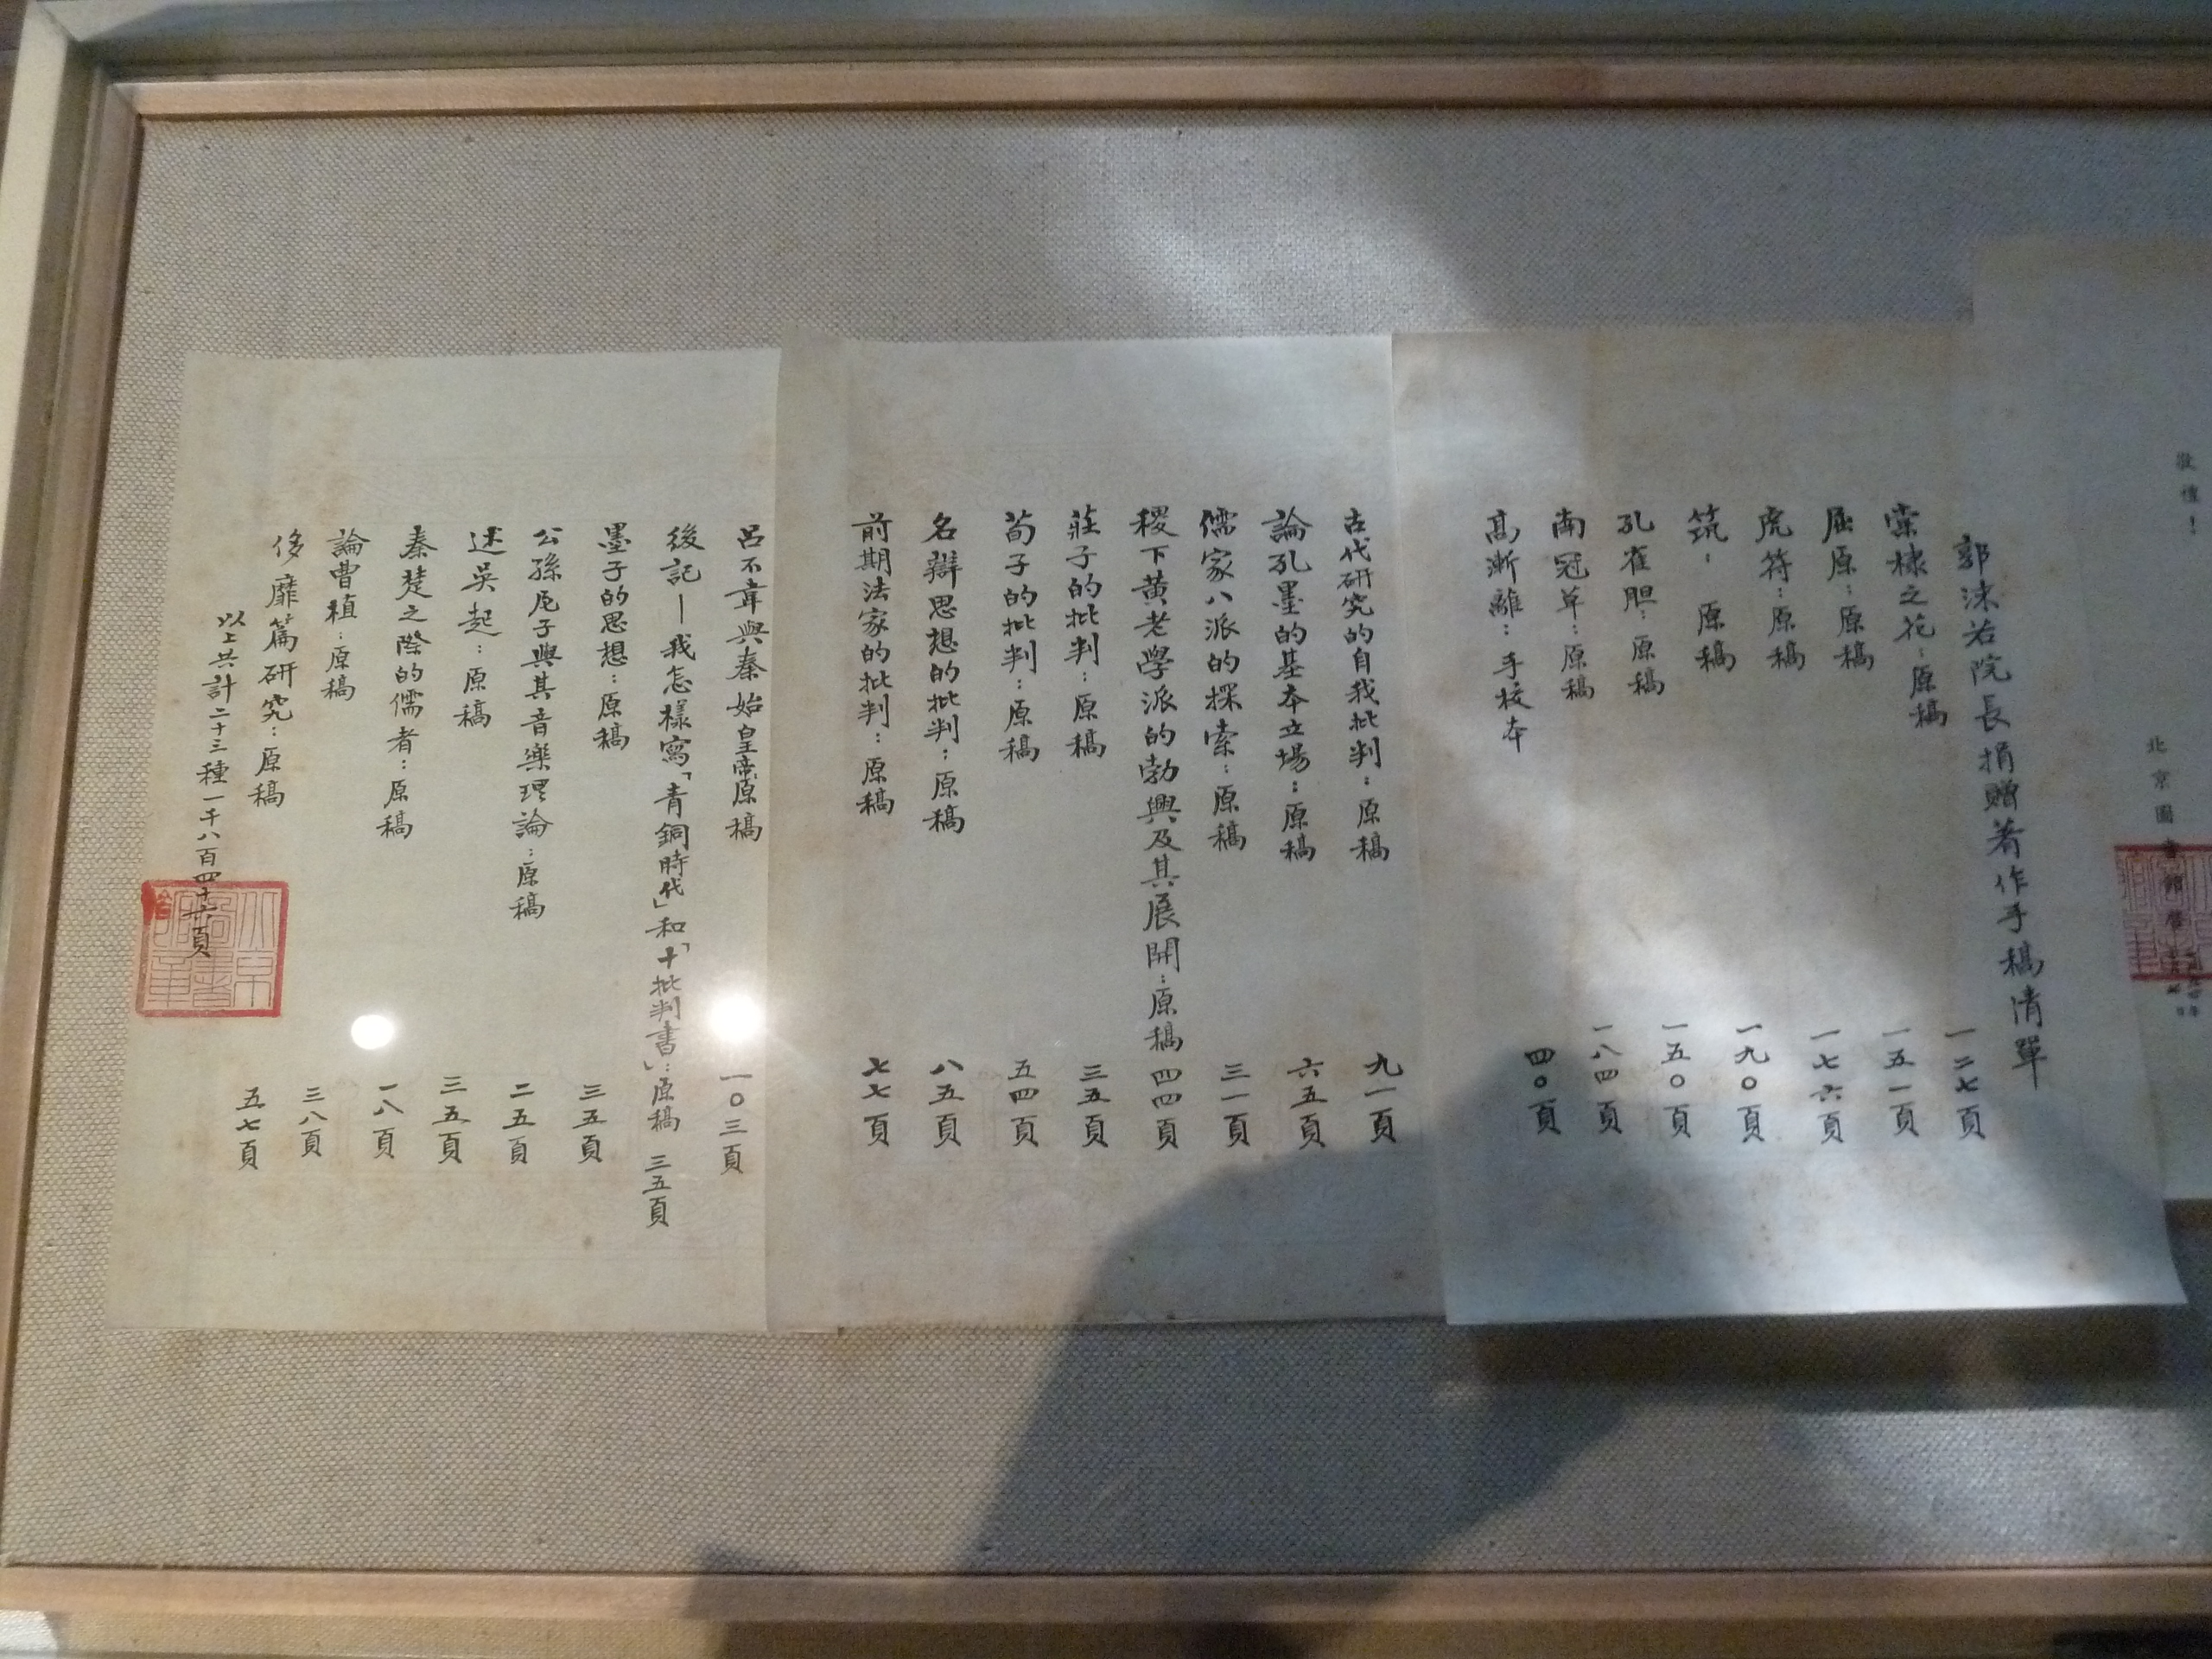 敬禮！
北京圖書館啓
郭沫若院長捐贈著作手稿清單
棠棣之花：原稿 一二七頁
屈原：原稿 一五一頁
虎符：原稿 一七六頁
筑： 原稿 一九〇頁
孔雀胆：原稿 一五〇頁
南冠草：原稿 一八四頁
高漸離：手校本 四〇頁
古代研究的自我批判：原稿 九一頁
論孔墨的基本立場：原稿 六五頁
儒家八派的探索：原稿 三一頁
稷下黄老學派的勃興及其展開：原稿 四四頁
莊子的批判：原稿 三五頁
荀子的批判：原稿 五四頁
名辯思想的批判：原稿 八五頁
前期法家的批判：原稿 七七頁
呂不韋與秦始皇帝原稿 一〇三頁
後記—我怎樣寫「青銅時代」和「十批判書」：原稿 三五頁
墨子的思想：原稿 三五頁
公孫尼子與其音樂理論：原稿 二五頁
述吳起：原稿 三五頁
秦楚之際的儒者：原稿 一八頁
論曹植：原稿 三八頁
侈靡篇研究：原稿 五七頁
以上共計二十三種一千八百四十六頁